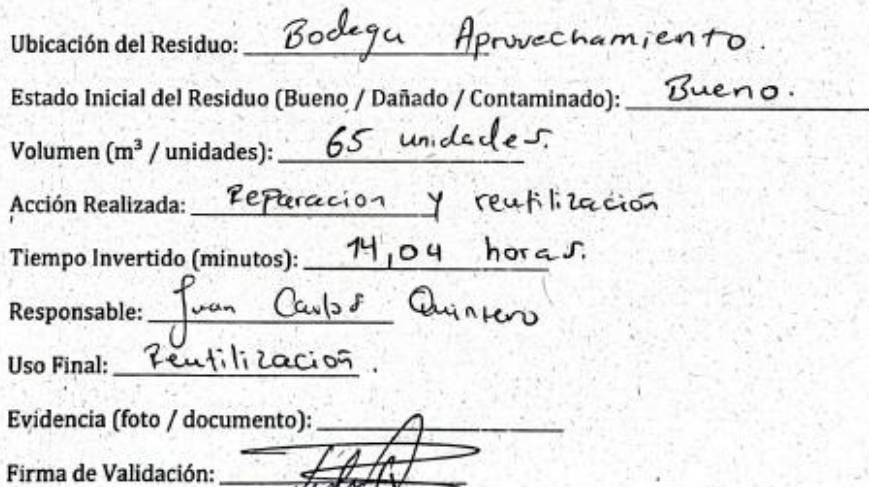 Ubicación del Residuo: Bodega Aprovechamiento.
Estado Inicial del Residuo (Bueno / Dañado / Contaminado): Bueno.
Volumen (m³ / unidades): 65 unidades.
Acción Realizada: Reparacion y reutilización
Tiempo Invertido (minutos): 14,04 horas.
Responsable: Juan Carlos Quintero
Uso Final: Reutilización.
Evidencia (foto / documento):
Firma de Validación: